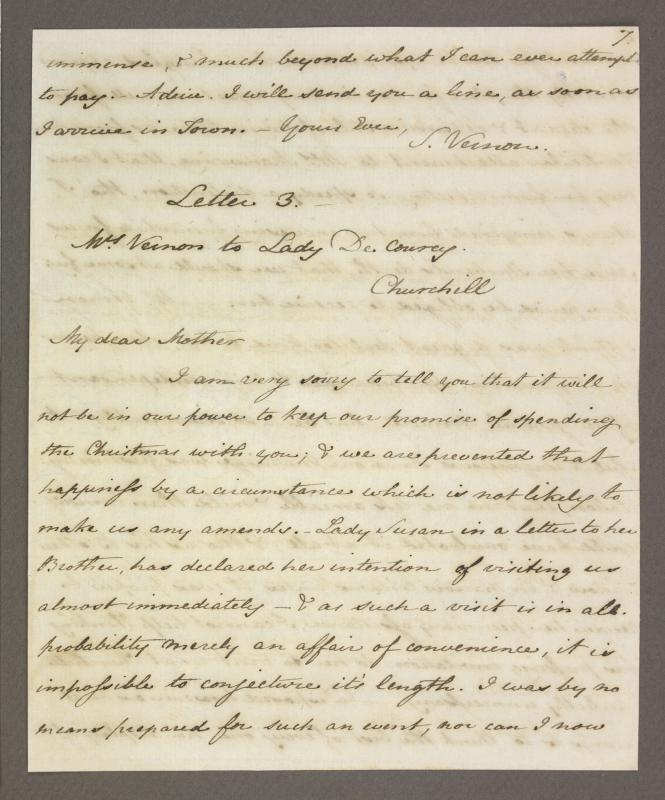 7.
immense, & much beyond what I can ever attempt
to pay. – Adieu. I will send you a line, as soon as
I arrive in Town. – Yours Ever,
S. Vernon.
Letter 3. –
Mrs Vernon to Lady De Courcy.
Churchill
My dear Mother
I am very sorry to tell you that it will
not be in our power to keep our promise of spending
the Christmas with you; & we are prevented that
happiness by a circumstance which is not likely to
make us any amends. – Lady Susan in a letter to her
Brother, has declared her intention of visiting us
almost immediately – & as such a visit is in all
probability merely an affair of convenience, it is
impossible to conjecture it's length. I was by no
means prepared for such an event, nor can I now